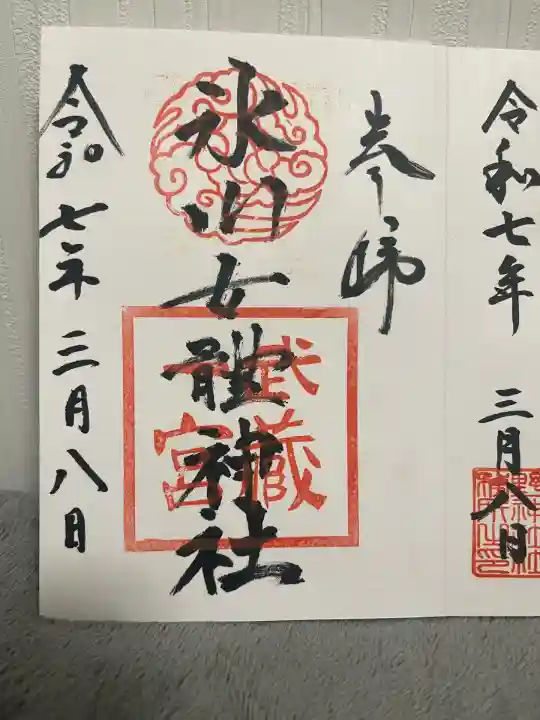 令和七年 三月八日
奉拝
氷川女體神社
武藏
宮
令和七年三月八日